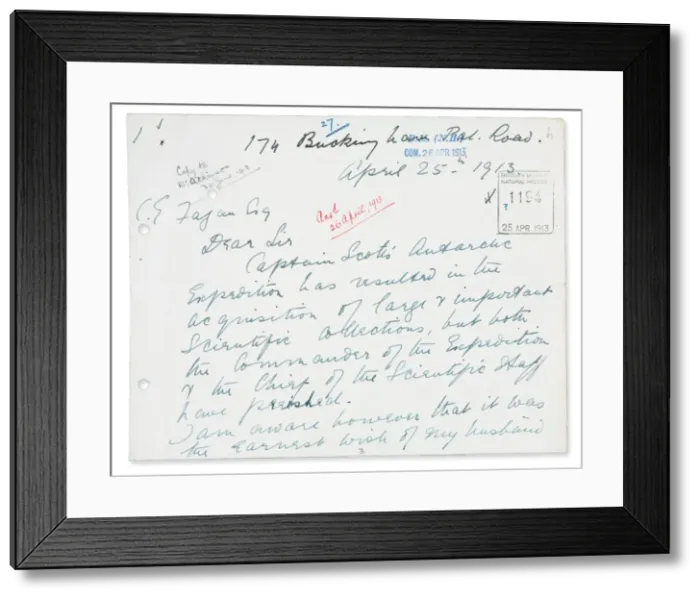 27.
174 Buckingham Pal. Road.
April 25th 1913
C.E. Fagan Esq
Ansd
26 April, 1913
1194
25 APR 1913
Dear Sir
Captain Scott's Antarctic
Expedition has resulted in the
acquisition of large & important
Scientific collections, but both
the Commander of the Expedition
& the Chief of the Scientific Staff
have perished.
I am aware however that it was
the earnest wish of my husband